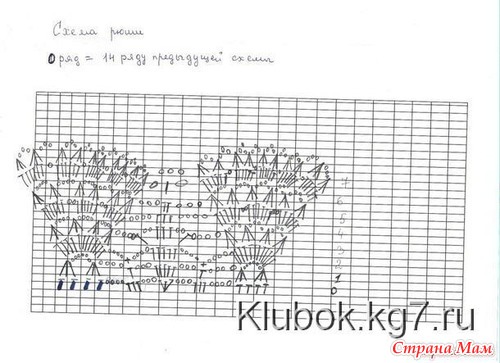 Схема рюши
0 ряд = 14 ряду предыдущей схемы
7
6
5
4
3
2
1
0
Klubok.kg7.ru
Страна Мам